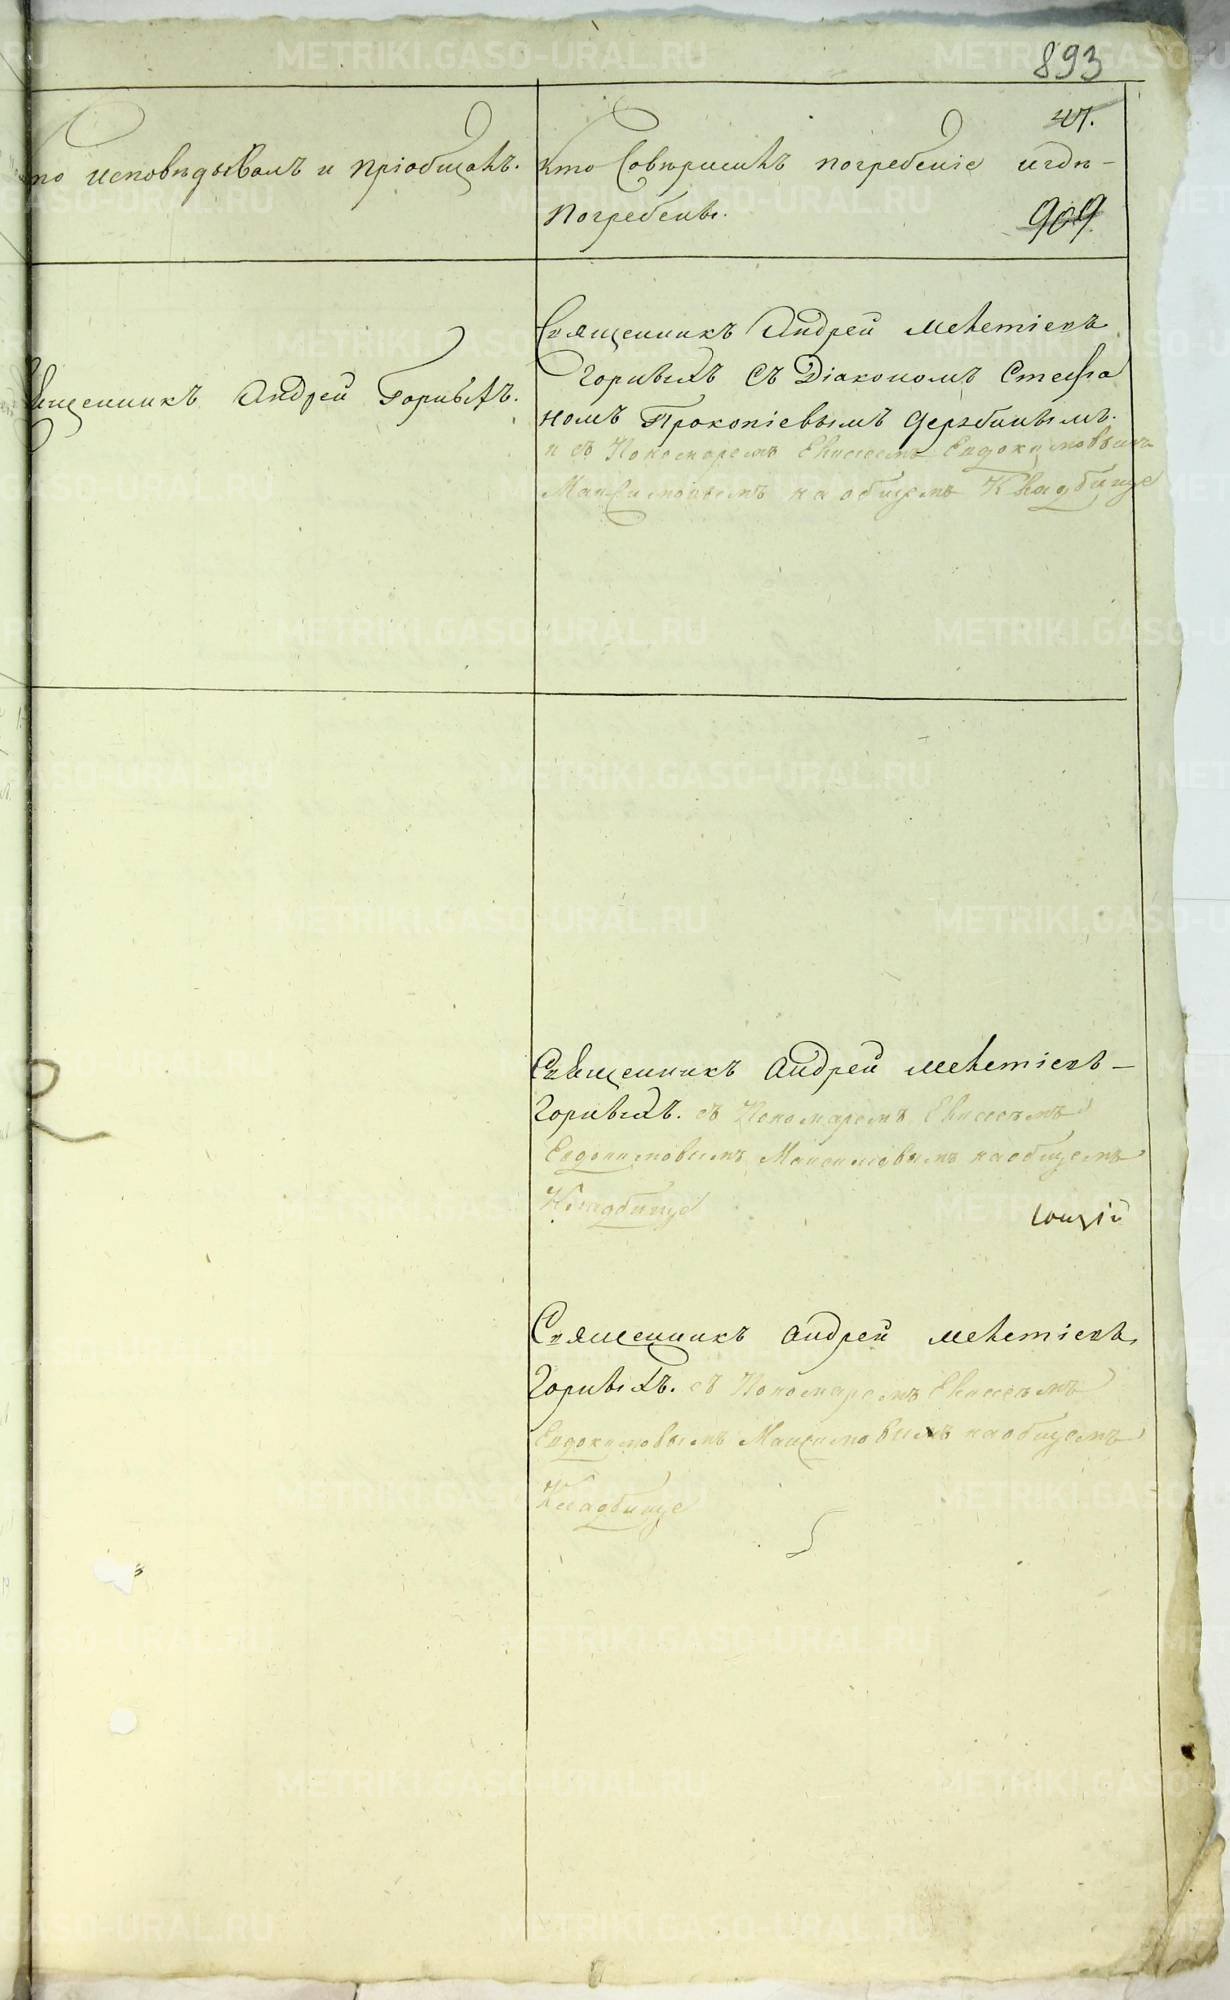 893
41.
кто исповѣдывалъ и пріобщалъ.
Кто Совершилъ погребеніе и гдѣ
Погребены.
909
Священникъ Андрей Горныхъ.
Священникъ Андрей Мелетіевъ
Горныхъ съ Діакономъ Стефа
номъ Прокопіевымъ Дерябинымъ.
и съ Пономаремъ Елисеемъ Евдокимовымъ
Максимовымъ на общемъ Кладбище
Священникъ Андрей Мелетіевъ
Горныхъ. съ Пономаремъ Елисеемъ
Евдокимовымъ Максимовымъ на общемъ
Кладбище
Священникъ Андрей Мелетіевъ
Горныхъ. съ Пономаремъ Елисеемъ
Евдокимовымъ Максимовымъ на общемъ
Кладбище
METRIKI.GASO-URAL.RU